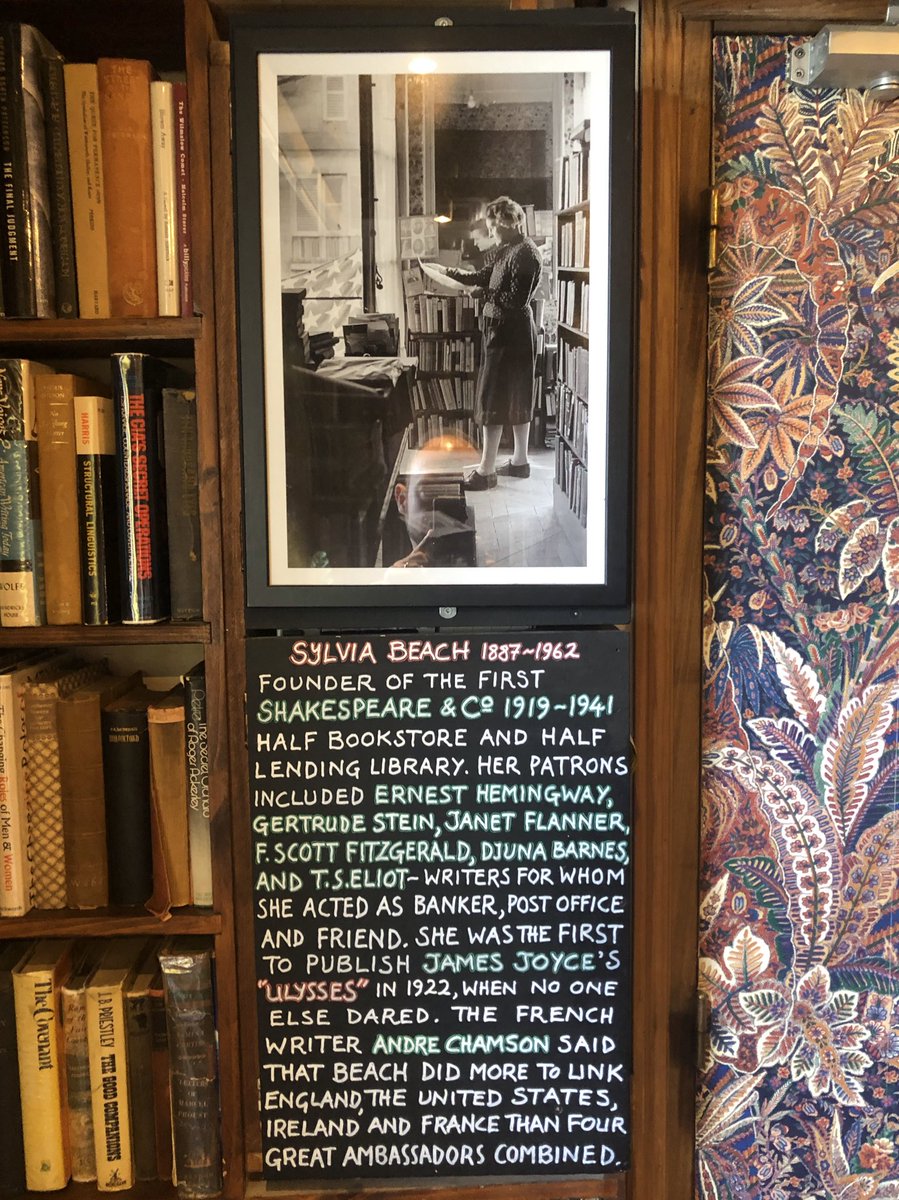 THE FINAL JUDGMENT
The Wilmslow Comet - Malcolm Stacey
HARRIS
STRUCTURAL LINGUISTICS
THE CIA'S SECRET OPERATIONS
WOLFE
The Changing Roles of Men & Women
The Covenant
J.B. PRIESTLEY
THE GOOD COMPANIONS
LETTERS OF MARCEL PROUST
SYLVIA BEACH 1887~1962
FOUNDER OF THE FIRST
SHAKESPEARE & Co 1919~1941
HALF BOOKSTORE AND HALF
LENDING LIBRARY. HER PATRONS
INCLUDED ERNEST HEMINGWAY,
GERTRUDE STEIN, JANET FLANNER,
F. SCOTT FITZGERALD, DJUNA BARNES,
AND T.S.ELIOT~WRITERS FOR WHOM
SHE ACTED AS BANKER, POST OFFICE
AND FRIEND. SHE WAS THE FIRST
TO PUBLISH JAMES JOYCE'S
"ULYSSES" IN 1922, WHEN NO ONE
ELSE DARED. THE FRENCH
WRITER ANDRE CHAMSON SAID
THAT BEACH DID MORE TO LINK
ENGLAND, THE UNITED STATES,
IRELAND AND FRANCE THAN FOUR
GREAT AMBASSADORS COMBINED.